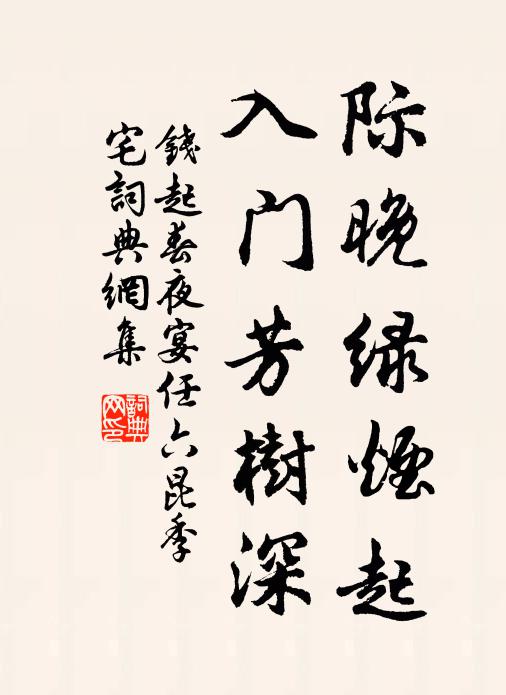 际晚绿烟起
入门芳樹深
錢起春夜宴任六昆季
宅詞典網集
詞典网印